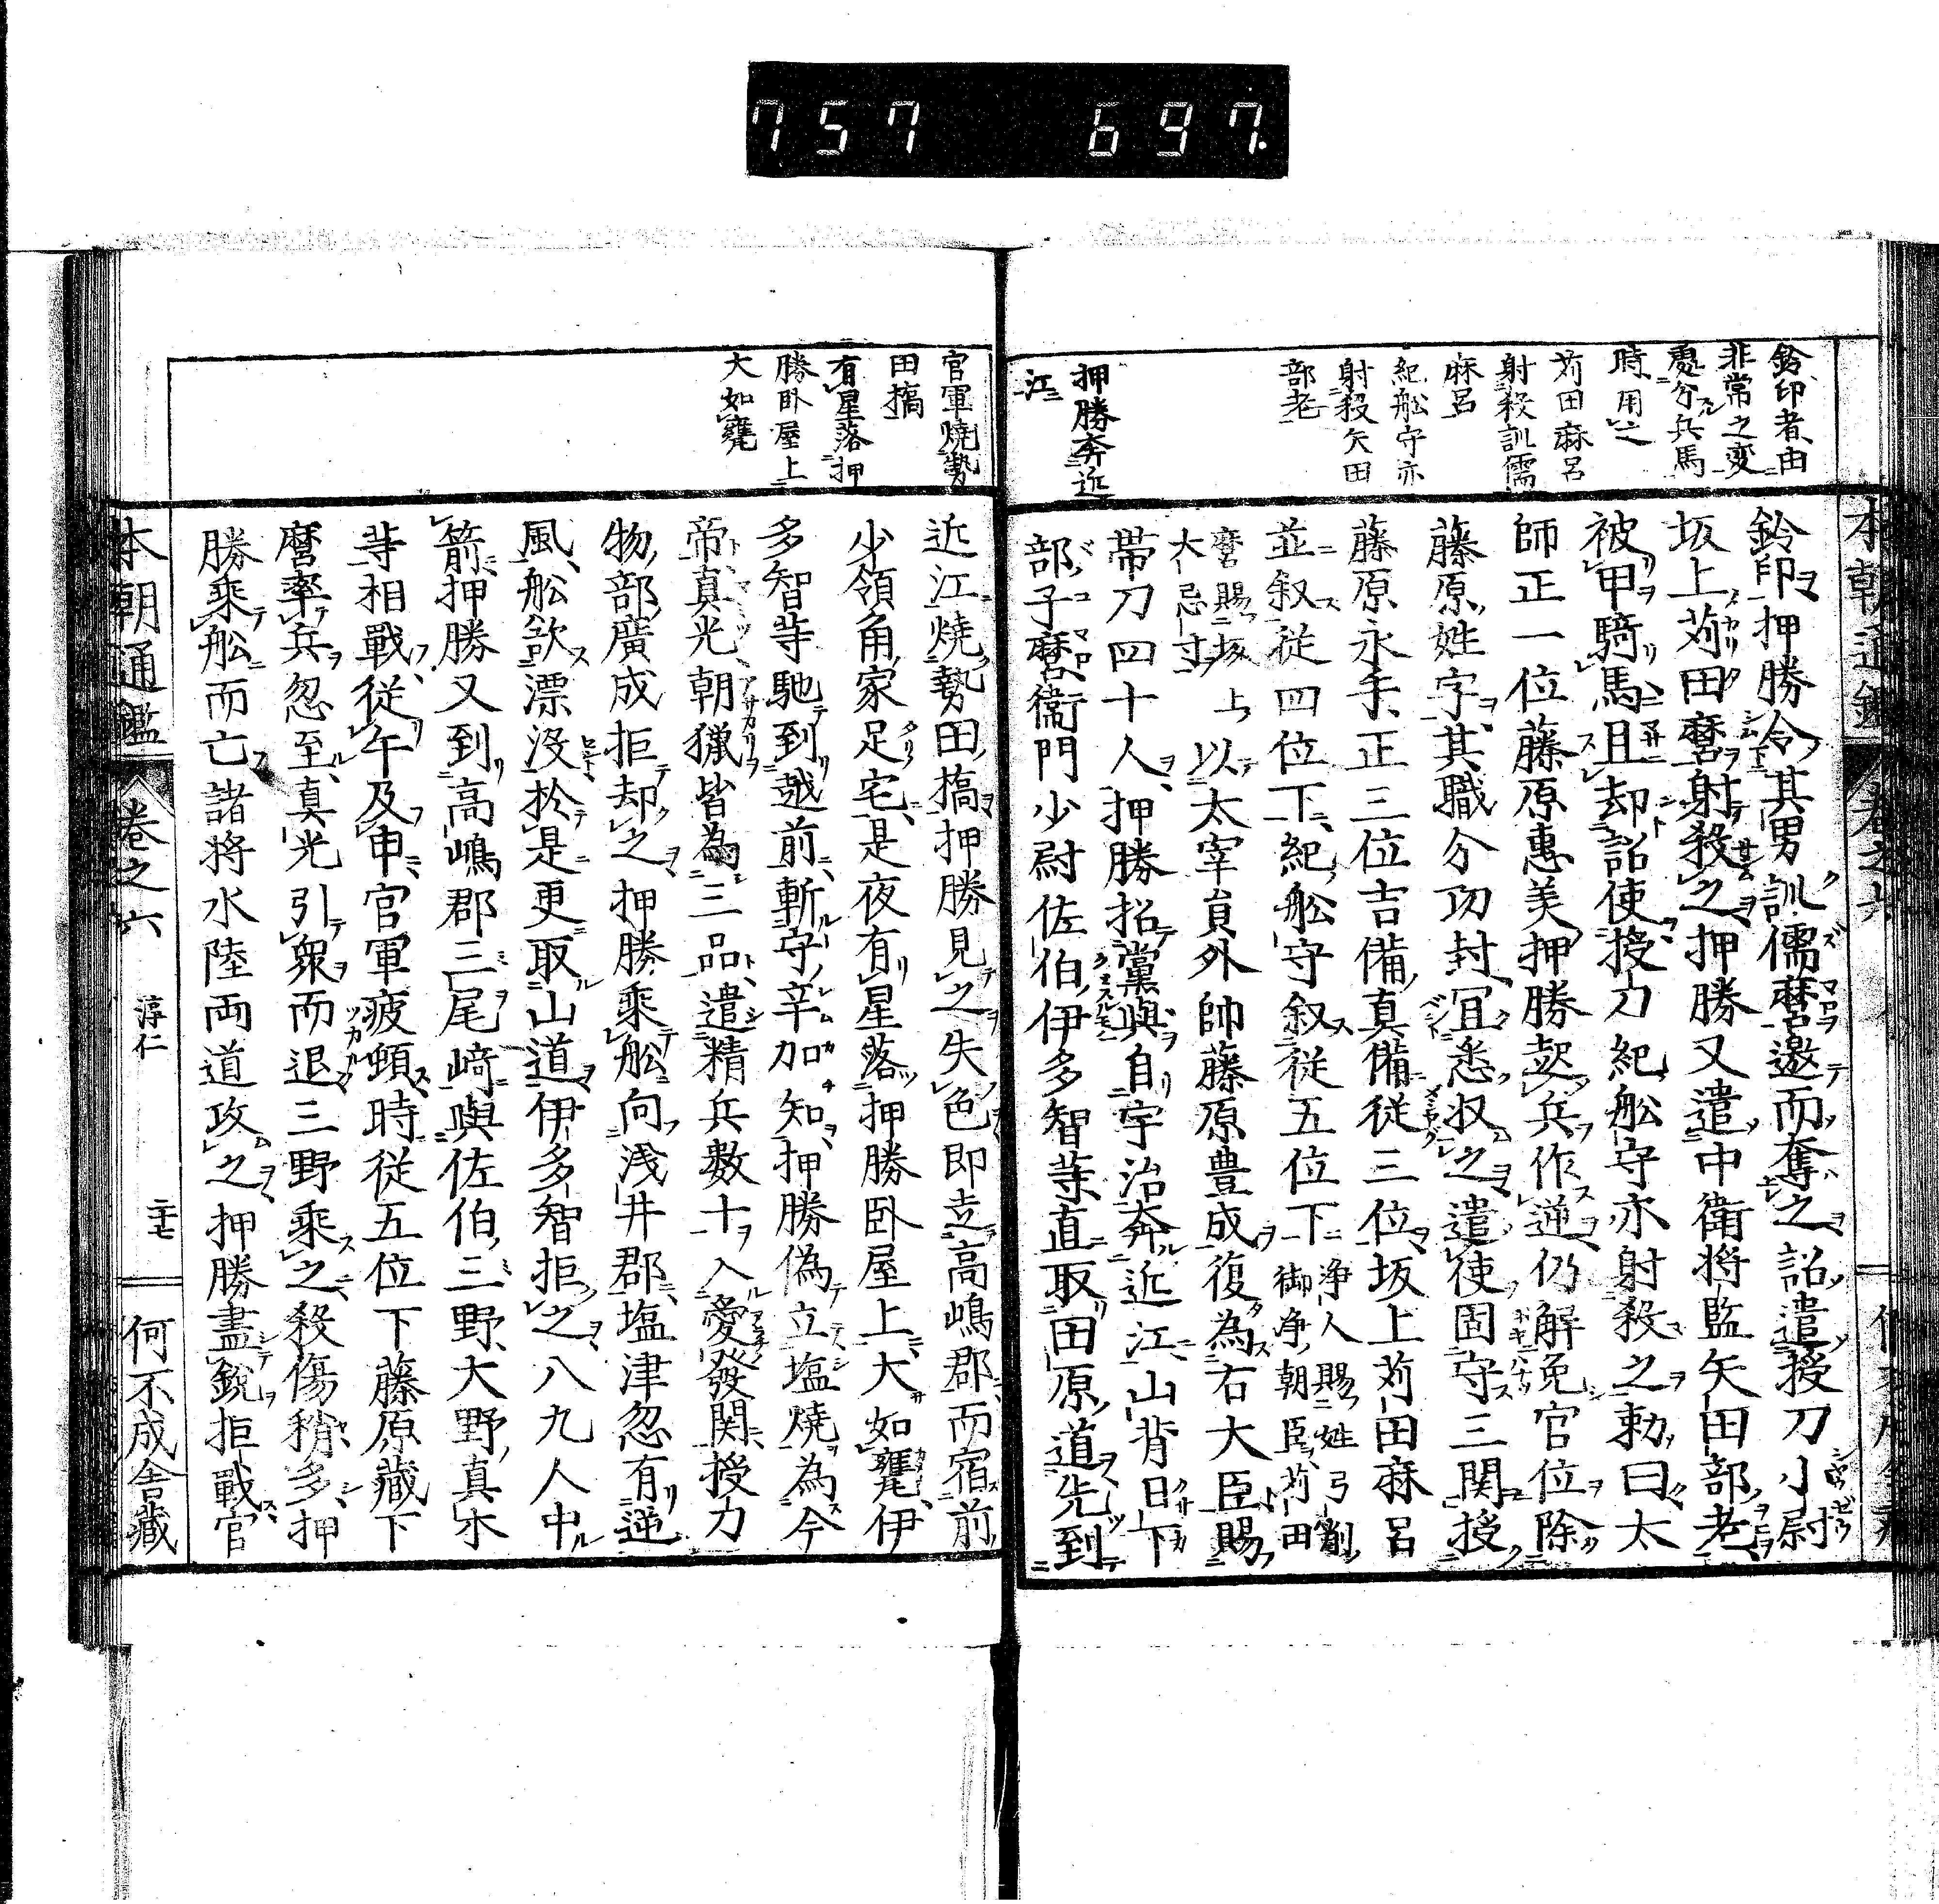 757 697.
鈴印者由
非常之変
處分兵馬
時用之
苅田麻呂
射殺訓儒
麻呂
紀舩守亦
射殺矢田
部老
押勝奔近
江
鈴印押勝令其男訓儒麿邀而奪之詔遣授刀小尉
坂上苅田麿射殺之押勝又遣中衛將監矢田部老
被甲騎馬且却詔使授刀紀舩守亦射殺之勅曰太
師正一位藤原惠美押勝起兵作逆仍解免官位除
藤原姓字其職分功封冝悉收之遣使固守三関授
藤原永手正三位吉備真備従三位坂上苅田麻呂
並叙従四位下紀舩守叙従五位下浄人賜姓弓削
御浄朝臣苅田
麿賜坂上
大忌寸以太宰員外帥藤原豊成復為右大臣賜
帯刀四十人押勝招黨與自宇治奔近江山背日下
部子麿衛門少尉佐伯伊多智䓁直取田原道先到
官軍燒勢
田𣘺
有星落押
勝臥屋上
大如甕
近江燒勢田槁押勝見之失色即走高嶋郡而宿前
少領角家足宅是夜有星落押勝臥屋上大如甕伊
多智䓁馳到越前斬守辛加知押勝偽立塩燒為今
帝真光朝獵皆為三品遣精兵數十入愛發関授刀
物部廣成拒却之押勝乘舩向浅井郡塩津忽有逆
風舩欲漂沒於是更取山道伊多智拒之八九人中
箭押勝又到高嶋郡三尾﨑與佐伯三野大野真本
䓁相戰従午及申官軍疲頓時従五位下藤原藏下
麿率兵忽至真光引衆而退三野乘之殺傷稍多押
勝乘舩而亡諸將水陸両道攻之押勝盡銳拒戰官
本朝通鑑
卷之六
淳仁
三十七
何不成舎藏